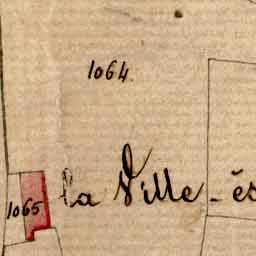 1064
la Ville-és
1065